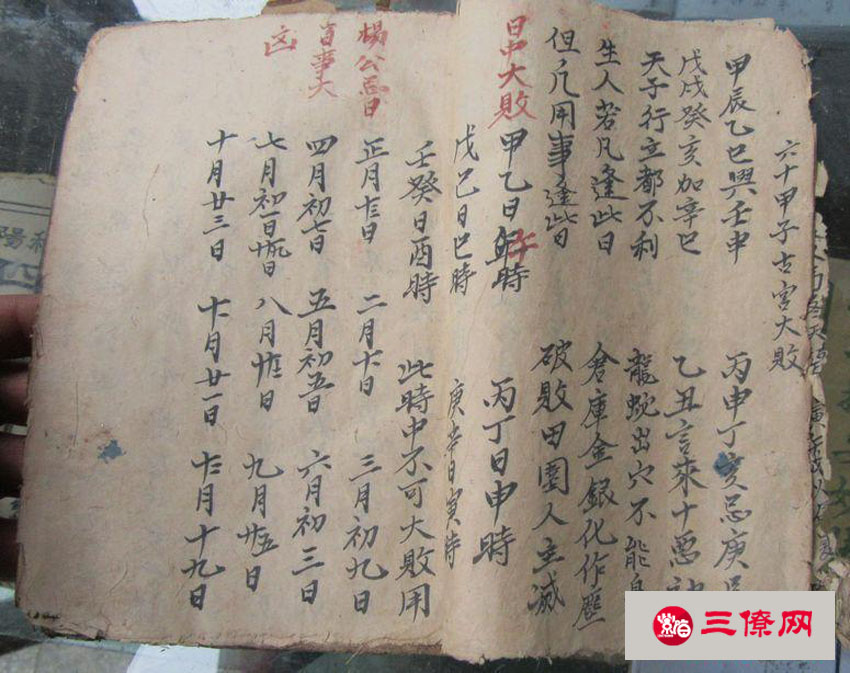 六十甲子古宮大敗
甲辰乙巳與壬申 丙申丁亥忌庚
戊戌癸亥加辛巳 乙丑言來十惡
天子行立都不利 龍蛇出穴不能
生人若凡逢此日 倉庫金銀化作塵
但凡用事逢此日 破敗田園人主滅
日中大敗 甲乙日午時 丙丁日申時
戊己日巳時 庚辛日寅時
壬癸日酉時 此時中不可大敗用
楊公忌日 正月十三日 二月十一日 三月初九日
百事大 四月初七日 五月初五日 六月初三日
凶 七月初一日廿九日 八月廿七日 九月廿五日
十月廿三日 十一月廿一日 十二月十九日
三僚网